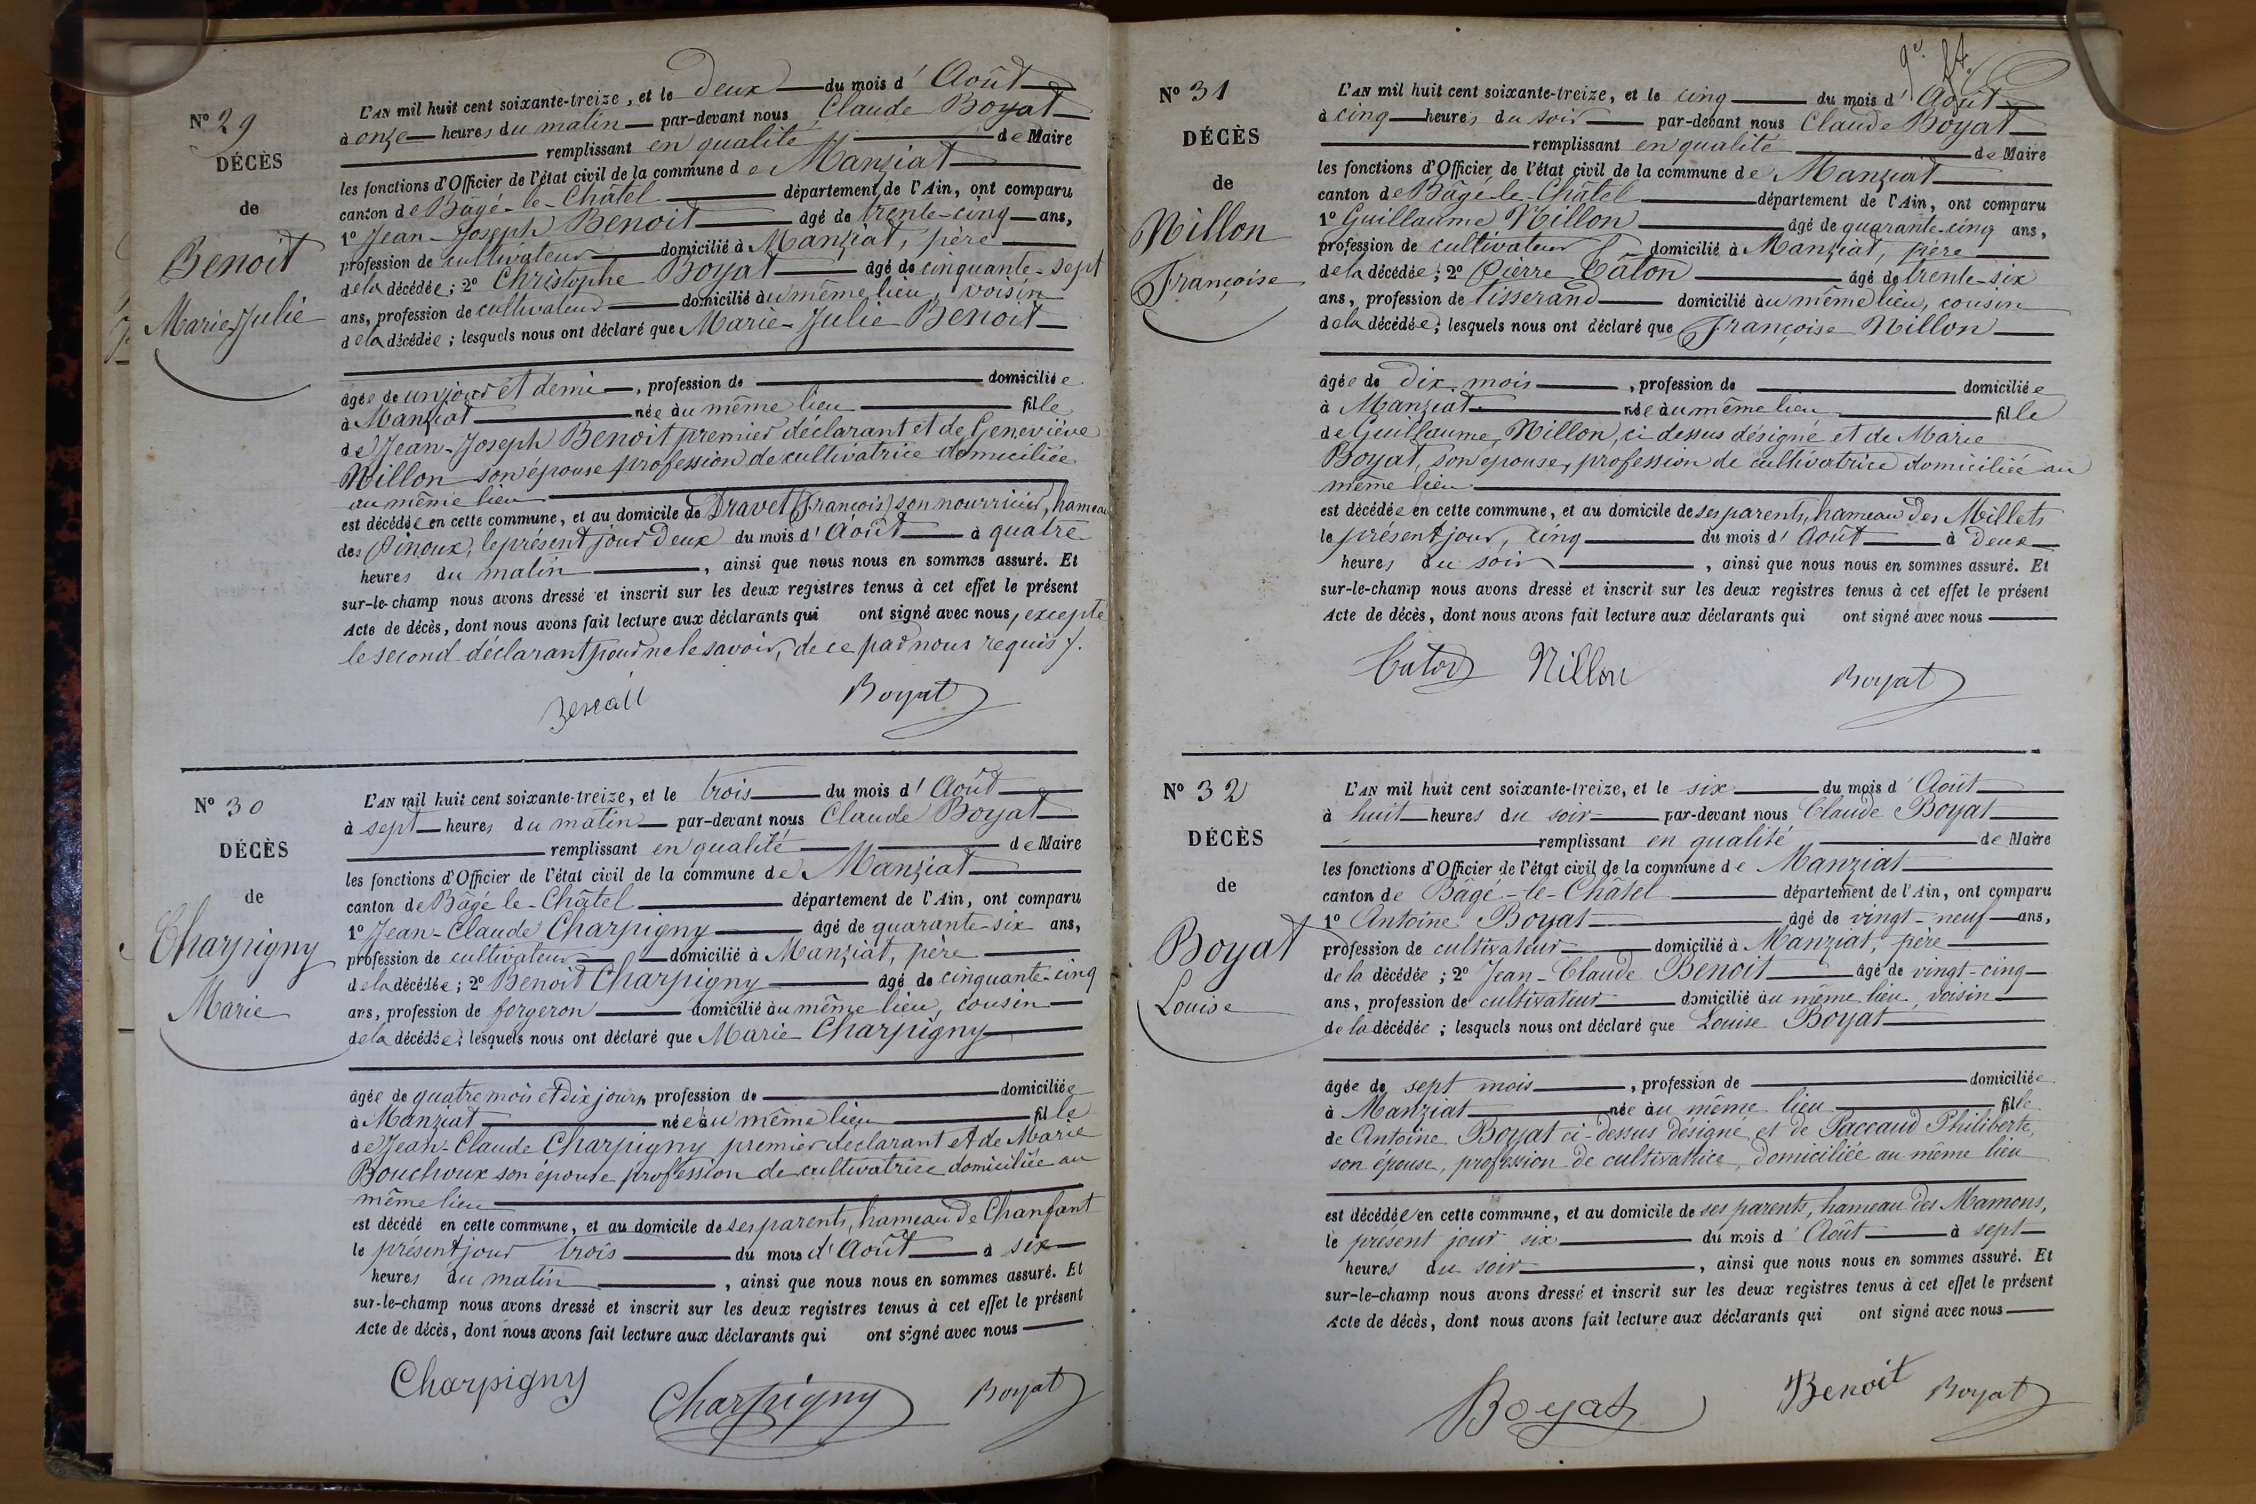 Nº 29
DÉCÈS
de
Benoit
Marie Julie
L'AN mil huit cent soixante-treize, et le deux du mois d'Août
à onze heures du matin par-devant nous Claude Boyat
remplissant en qualité de Maire
les fonctions d'Officier de l'état civil de la commune de Manziat
canton de Bâgé-le-Châtel département de l'Ain, ont comparu
1º Jean-Joseph Benoit âgé de trente-cinq ans,
profession de cultivateur domicilié à Manziat, père
de la décédée ; 2º Christophe Boyat âgé de cinquante-sept
ans, profession de cultivateur domicilié au même lieu, voisin
de la décédée ; lesquels nous ont déclaré que Marie-Julie Benoit
âgée de un jour et demi, profession de domiciliée
à Manziat née au même lieu fille
de Jean-Joseph Benoit premier déclarant et de Geneviève
Nillon son épouse profession de cultivatrice domiciliée
au même lieu
est décédée en cette commune, et au domicile de Dravet (François) son nourricier, hameau
des Pinoux, le présent jour deux du mois d'Août à quatre
heures du matin, ainsi que nous nous en sommes assuré. Et
sur-le-champ nous avons dressé et inscrit sur les deux registres tenus à cet effet le présent
Acte de décès, dont nous avons fait lecture aux déclarants qui ont signé avec nous, excepté
le second déclarant pour ne le savoir, de ce par nous requis.
Boyat
Nº 30
DÉCÈS
de
Charpigny
Marie
L'AN mil huit cent soixante-treize, et le trois du mois d'Août
à sept heures du matin par-devant nous Claude Boyat
remplissant en qualité de Maire
les fonctions d'Officier de l'état civil de la commune de Manziat
canton de Bâgé le-Châtel département de l'Ain, ont comparu
1º Jean-Claude Charpigny âgé de quarante-six ans,
profession de cultivateur domicilié à Manziat, père
de la décédée ; 2º Benoit Charpigny âgé de cinquante-cinq
ans, profession de forgeron domicilié au même lieu, cousin
de la décédée ; lesquels nous ont déclaré que Marie Charpigny
âgée de quatre mois et dix jours, profession de domiciliée
à Manziat née au même lieu fille
de Jean-Claude Charpigny premier déclarant et de Marie
Bouchoux son épouse profession de cultivatrice domiciliée au
même lieu
est décédé en cette commune, et au domicile de ses parents, hameau de Chanfant
le présent jour trois du mois d'Août à six
heures du matin, ainsi que nous nous en sommes assuré. Et
sur-le-champ nous avons dressé et inscrit sur les deux registres tenus à cet effet le présent
Acte de décès, dont nous avons fait lecture aux déclarants qui ont signé avec nous
Charpigny Charpigny Boyat
Nº 31
DÉCÈS
de
Nillon
Françoise
L'AN mil huit cent soixante-treize, et le cinq du mois d'Août
à cinq heures du soir par-devant nous Claude Boyat
remplissant en qualité de Maire
les fonctions d'Officier de l'état civil de la commune de Manziat
canton de Bâgé-le-Châtel département de l'Ain, ont comparu
1º Guillaume Nillon âgé de quarante-cinq ans,
profession de cultivateur domicilié à Manziat, père
de la décédée ; 2º Pierre Câton âgé de trente-six
ans, profession de tisserand domicilié au même lieu, cousin
de la décédée ; lesquels nous ont déclaré que Françoise Nillon
âgée de dix mois, profession de domiciliée
à Manziat née au même lieu fille
de Guillaume Nillon, ci dessus désigné et de Marie
Boyat, son épouse, profession de cultivatrice domiciliée au
même lieu
est décédée en cette commune, et au domicile de ses parents, hameau des Millets
le présent jour, cinq du mois d'Août à deux
heures du soir, ainsi que nous nous en sommes assuré. Et
sur-le-champ nous avons dressé et inscrit sur les deux registres tenus à cet effet le présent
Acte de décès, dont nous avons fait lecture aux déclarants qui ont signé avec nous
Caton Nillon Boyat
Nº 32
DÉCÈS
de
Boyat
Louise
L'AN mil huit cent soixante-treize, et le six du mois d'Août
à huit heures du soir par-devant nous Claude Boyat
remplissant en qualité de Maire
les fonctions d'Officier de l'état civil de la commune de Manziat
canton de Bâgé-le-Châtel département de l'Ain, ont comparu
1º Antoine Boyat âgé de vingt-neuf ans,
profession de cultivateur domicilié à Manziat, père
de la décédée ; 2º Jean-Claude Benoit âgé de vingt-cinq
ans, profession de cultivateur domicilié au même lieu, voisin
de la décédée ; lesquels nous ont déclaré que Louise Boyat
âgée de sept mois, profession de domiciliée
à Manziat née au même lieu fille
de Antoine Boyat ci-dessus désigné et de Paccaud Philiberte,
son épouse, profession de cultivatrice, domiciliée au même lieu
est décédée en cette commune, et au domicile de ses parents, hameau des Mamons,
le présent jour six du mois d'Août à sept
heures du soir, ainsi que nous nous en sommes assuré. Et
sur-le-champ nous avons dressé et inscrit sur les deux registres tenus à cet effet le présent
Acte de décès, dont nous avons fait lecture aux déclarants qui ont signé avec nous
Boyat Benoit Boyat